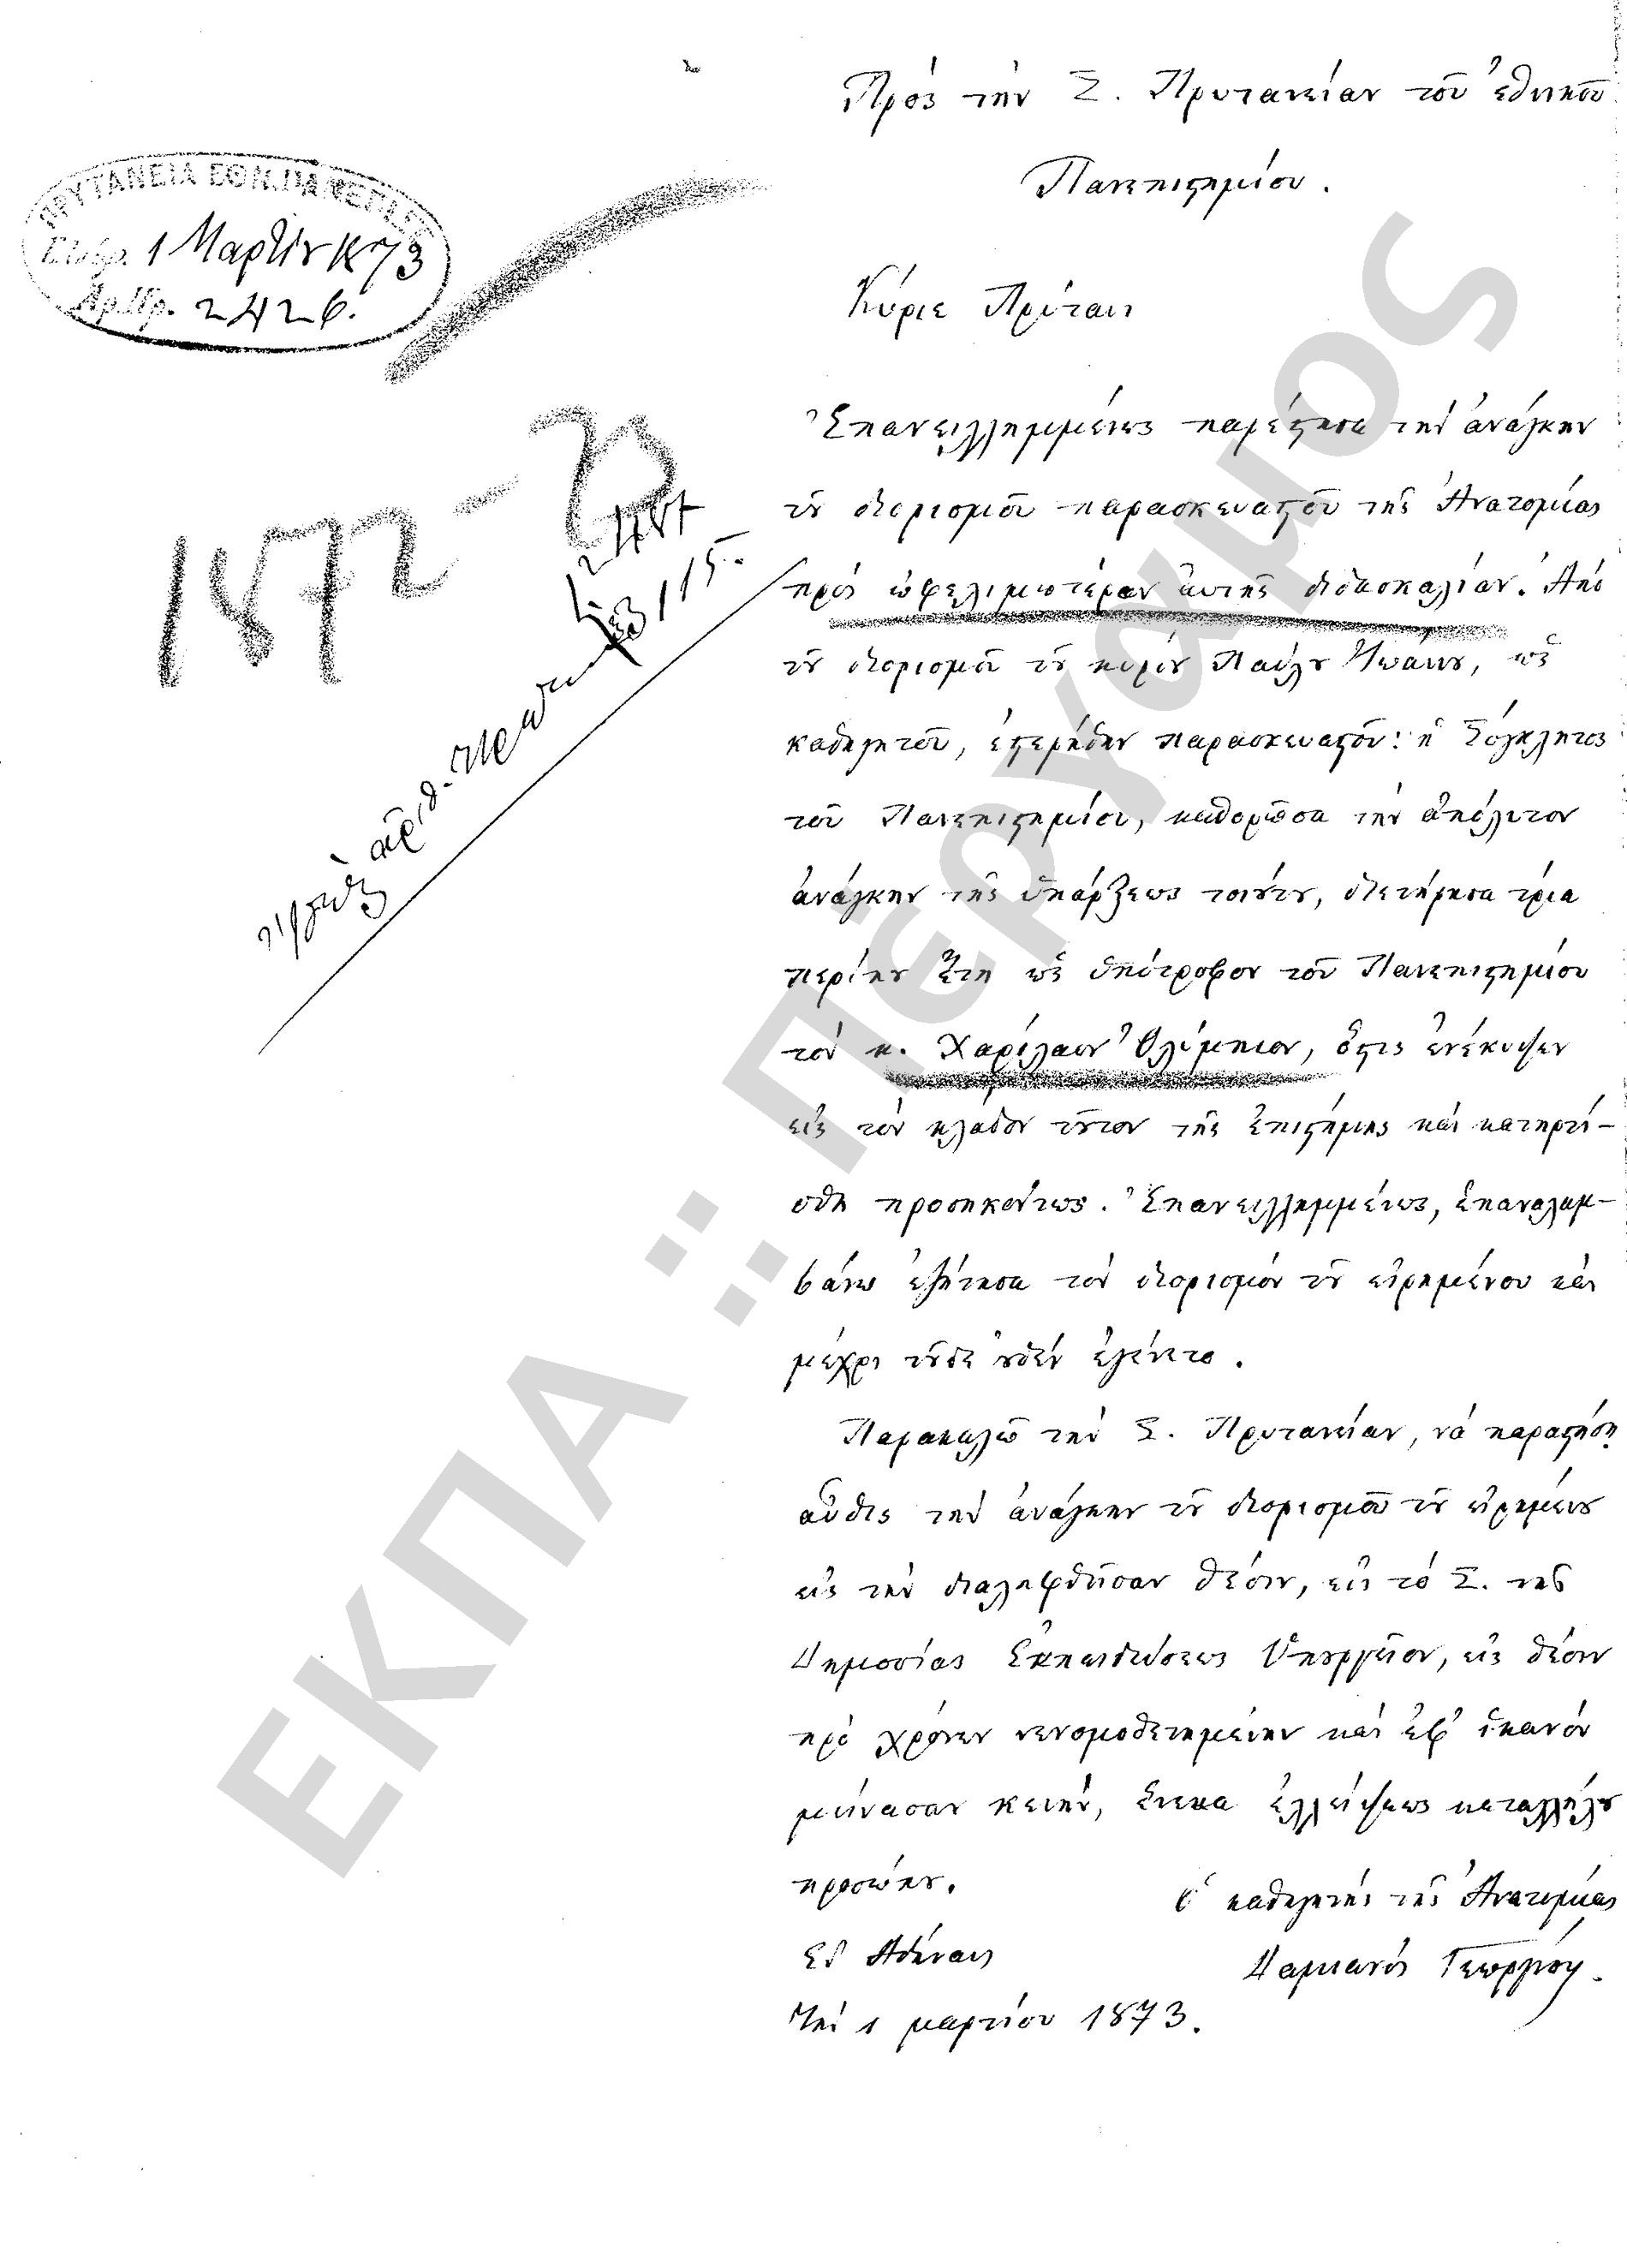 Πρὸς τὴν Σ. Πρυτανείαν τοῦ ἐθνικοῦ
Πανεπιστημίου.
ΠΡΥΤΑΝΕΙΑ ΕΘΝ. ΠΑΝΕΠΙΣΤ
1 Μαρτίου 1873
Ἀρ. Πρ. 2426.
1872-73
Κύριε Πρύτανι
Ἐπανειλλημμένως παρέστησα τὴν ἀνάγκην
τοῦ διορισμοῦ παρασκευαστοῦ τῆς Ἀνατομίας
πρὸς ὠφελιμωτέραν αὐτῆς διδασκαλίαν. Ἀπὸ
τοῦ διορισμοῦ τοῦ κυρίου Παύλου Ἰωάννου, ὡς
καθηγητοῦ, ἐστερήθην παρασκευαστοῦ: ἡ Σύγκλητος
τοῦ Πανεπιστημίου, καθορῶσα τὴν ἀπόλυτον
ἀνάγκην τῆς ὑπάρξεως τοιούτου, διετήρησα τρία
περίπου ἔτη ὡς ὑπότροφον τοῦ Πανεπιστημίου
τὸν κ. Χαρίλαον Ὀλύμπιον, ὅστις ἐνέκυψεν
εἰς τὸν κλάδον τοῦτον τῆς ἐπιστήμης καὶ κατηρτί-
σθη προσηκόντως. Ἐπανειλλημμένως, ἐπαναλαμ-
βάνω ἐζήτησα τὸν διορισμὸν τοῦ εἰρημένου καὶ
μέχρι τοῦδε οὐδὲν ἐγένετο.
Παρακαλῶ τὴν Σ. Πρυτανείαν, νὰ παραστήσῃ
αὖθις τὴν ἀνάγκην τοῦ διορισμοῦ τοῦ εἰρημένου
εἰς τὴν διαληφθεῖσαν θέσιν, εἰς τὸ Σ. τῆς
Δημοσίας Ἐκπαιδεύσεως Ὑπουργεῖον, εἰς θέσιν
πρὸ χρόνων νενομοθετημένην καὶ ἐφ' ἱκανὸν
μείνασαν κενὴν, ἕνεκα ἐλλείψεως καταλλήλου
προσώπου.
Ὁ καθηγητὴς τῆς Ἀνατομίας
Δαμιανὸς Γεωργίου.
Ἐν Ἀθήναις
Τῇ 1 μαρτίου 1873.
ΕΚΠΑ :: Πέργαμος